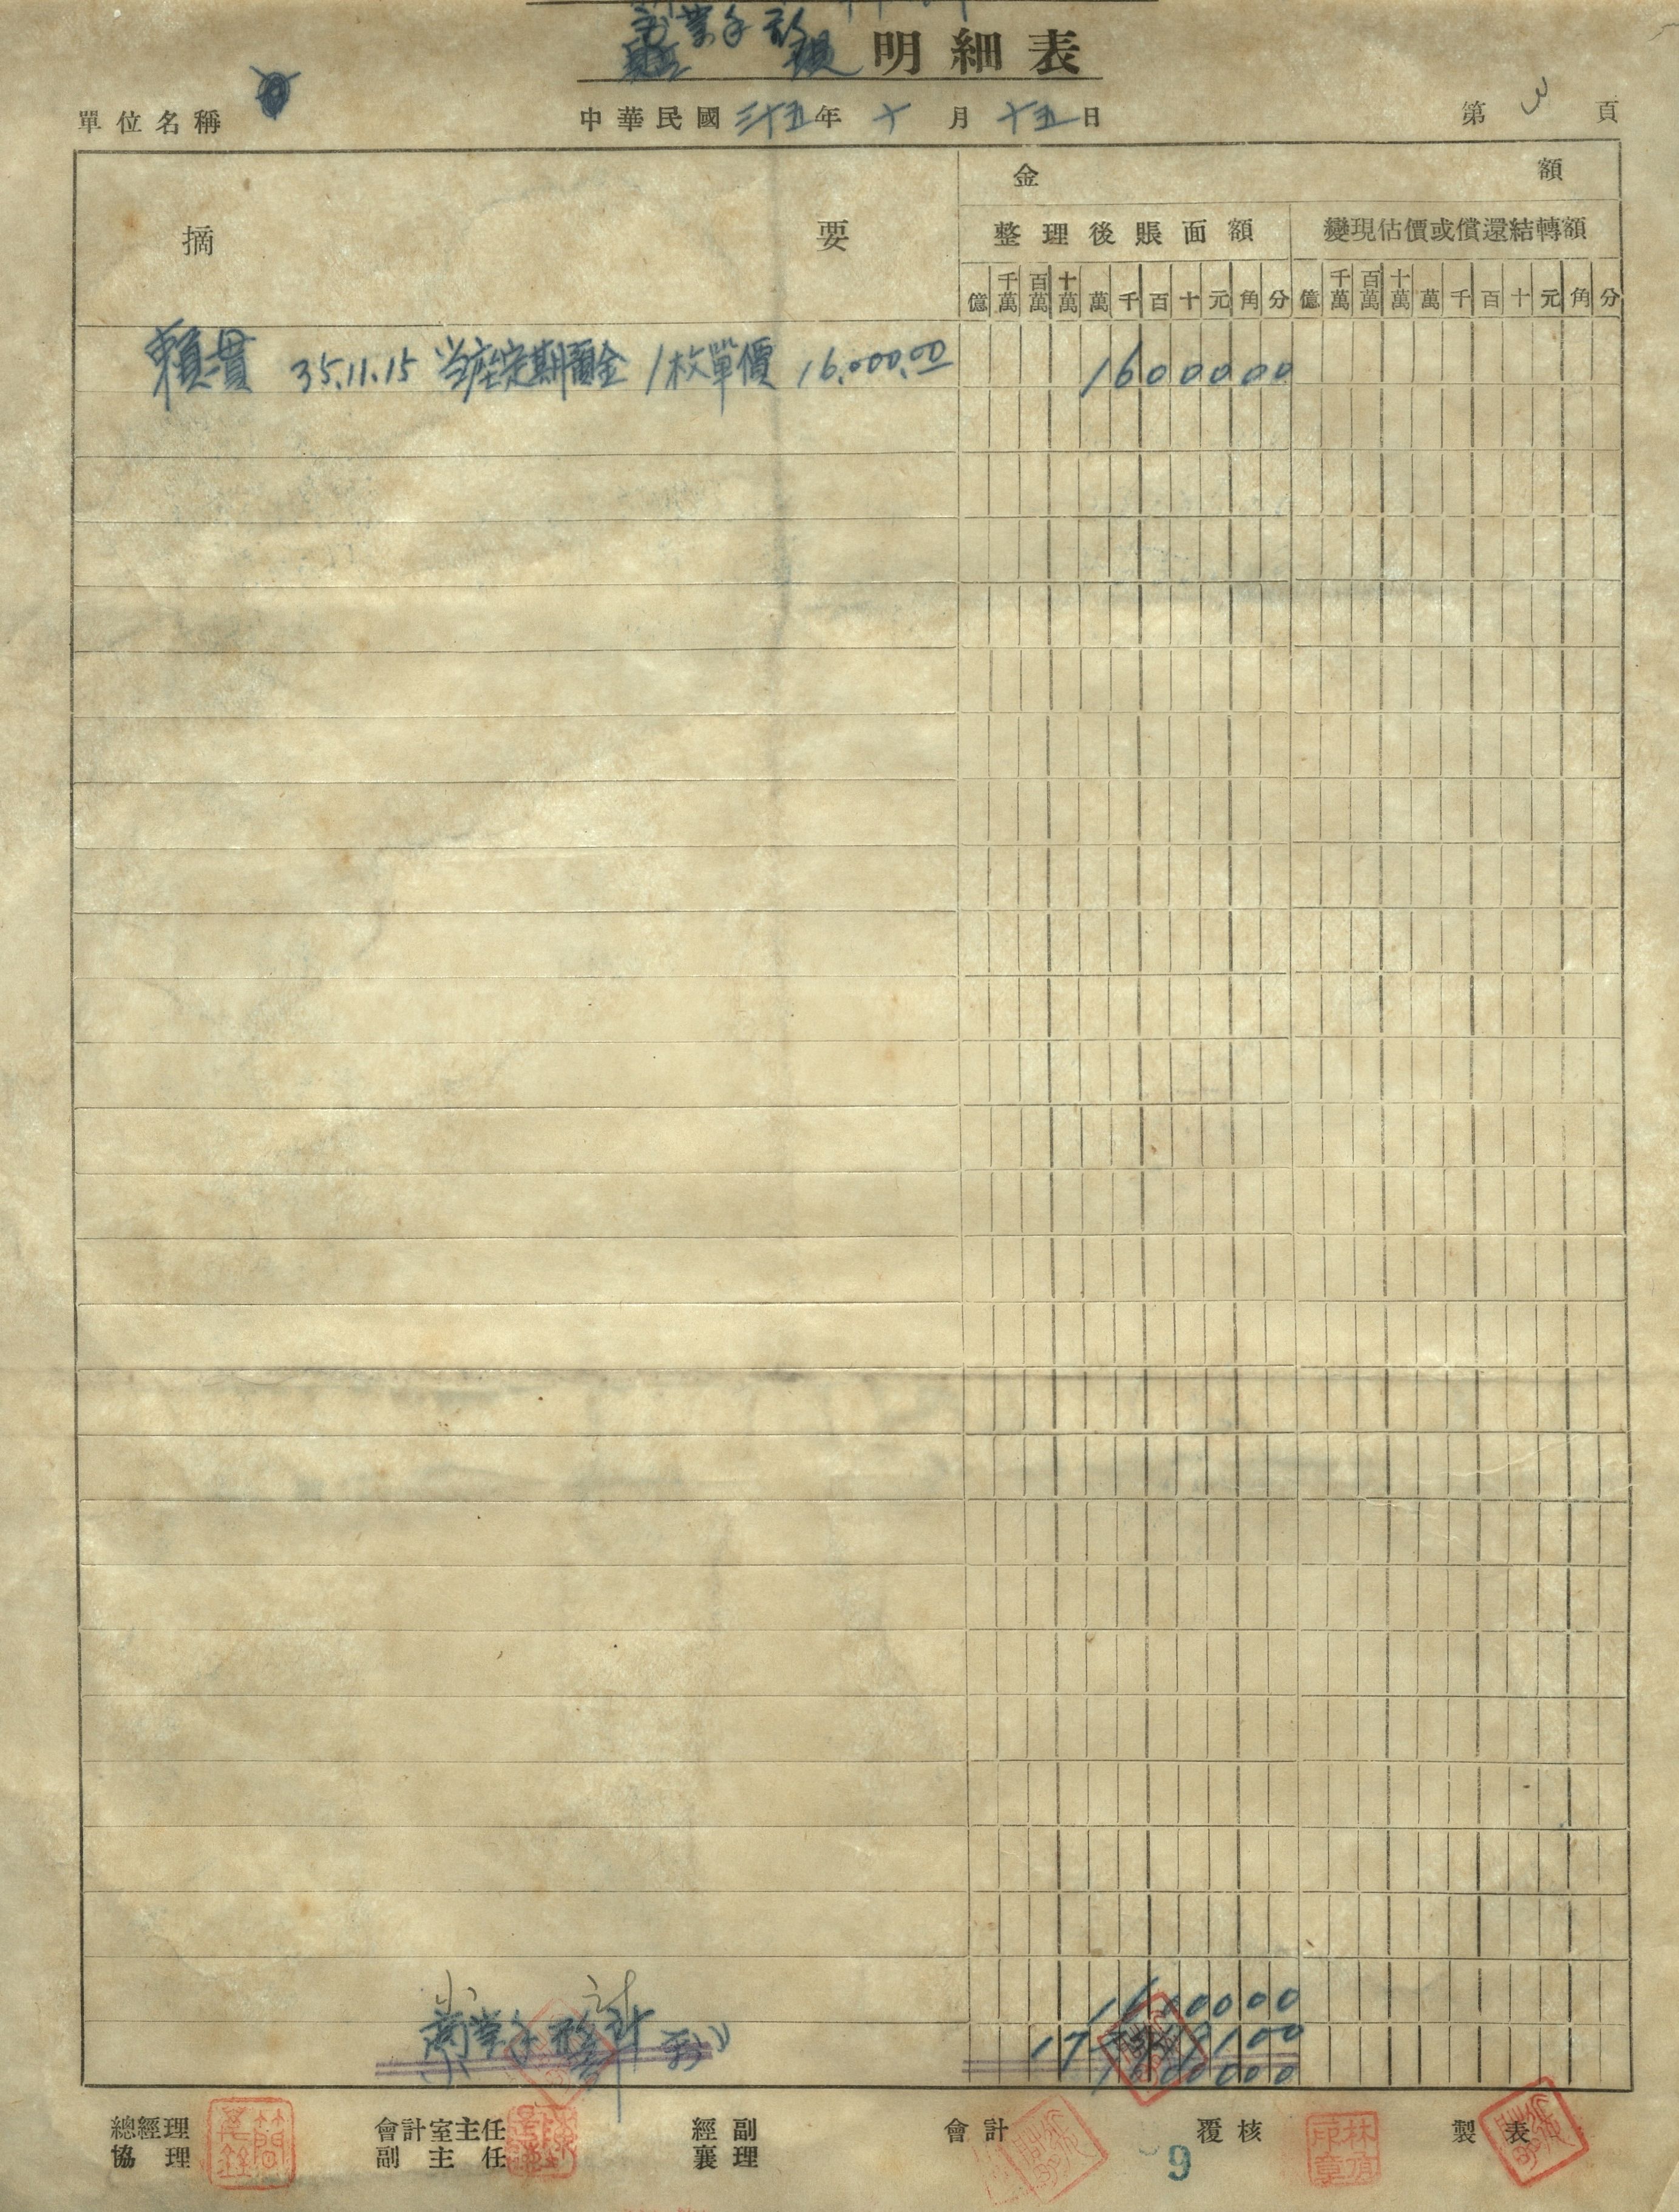 商業手形
明細表
單位名稱
中華民國三十五年十月十五日
第3頁
摘要
金額
整理後賬面額
變現估價或償還結轉額
億 千萬 百萬 十萬 萬 千 百 十 元 角 分 億 千萬 百萬 十萬 萬 千 百 十 元 角 分
賴貫 35.11.15 当座定期預金 1枚單價 16.000.00 1600000
小計 1600000
商業手形計
1600000
總經理 會計室主任 經副 會計 覆核 製表
協理 副主任 襄理
9